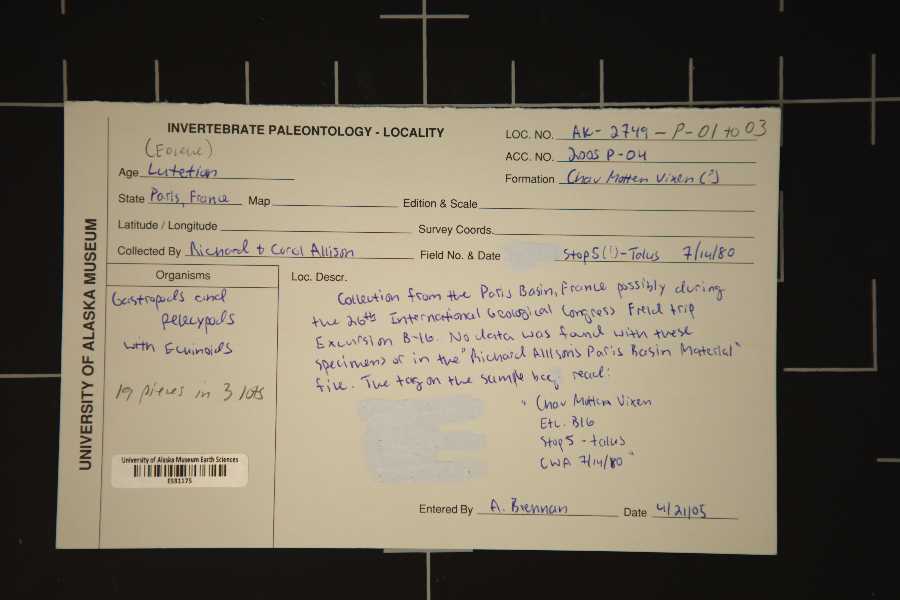 INVERTEBRATE PALEONTOLOGY - LOCALITY
LOC. NO. AK-2749-P-01 to 03
(Eocene)
ACC. NO. 2005 P-04
Age Lutetian
Formation Chav Motten Vixen (?)
State Paris, France Map Edition & Scale
Latitude / Longitude Survey Coords.
Collected By Richard & Carol Allison Field No. & Date Stop 5(?)-Talus 7/14/80
UNIVERSITY OF ALASKA MUSEUM
Organisms
Gastropods and
pelecypods
with Echinoids
19 pieces in 3 lots
University of Alaska Museum Earth Sciences
ES31175
Loc. Descr.
Collection from the Paris Basin, France possibly during
the 26th International Geological Congress Field trip
Excursion B-16. No data was found with these
specimens or in the "Richard Allisons Paris Basin Material"
file. The tag on the sample bag read:
" Chav Motten Vixen
Etc. B16
Stop 5 - talus
CWA 7/14/80 "
Entered By A. Brennan Date 4/21/05